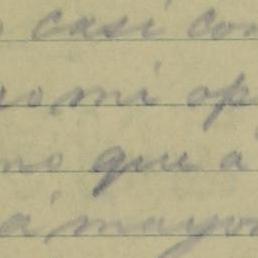 casi con
mi op
no que a
a mayor